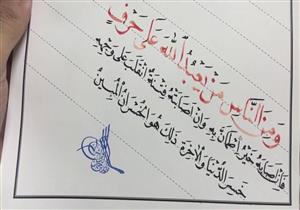 وَمِنَ النَّاسِ مَنْ يَعْبُدُ اللّٰهَ عَلَى حَرْفٍ
فَاِنْ اَصَابَهُ خَيْرٌ اطْمَاَنَّ بِهِ وَاِنْ اَصَابَتْهُ فِتْنَةٌ انْقَلَبَ عَلَى وَجْهِهِ
خَسِرَ الدُّنْيَا وَالْاٰخِرَةَ ذٰلِكَ هُوَ الْخُسْرَانُ الْمُبِينُ